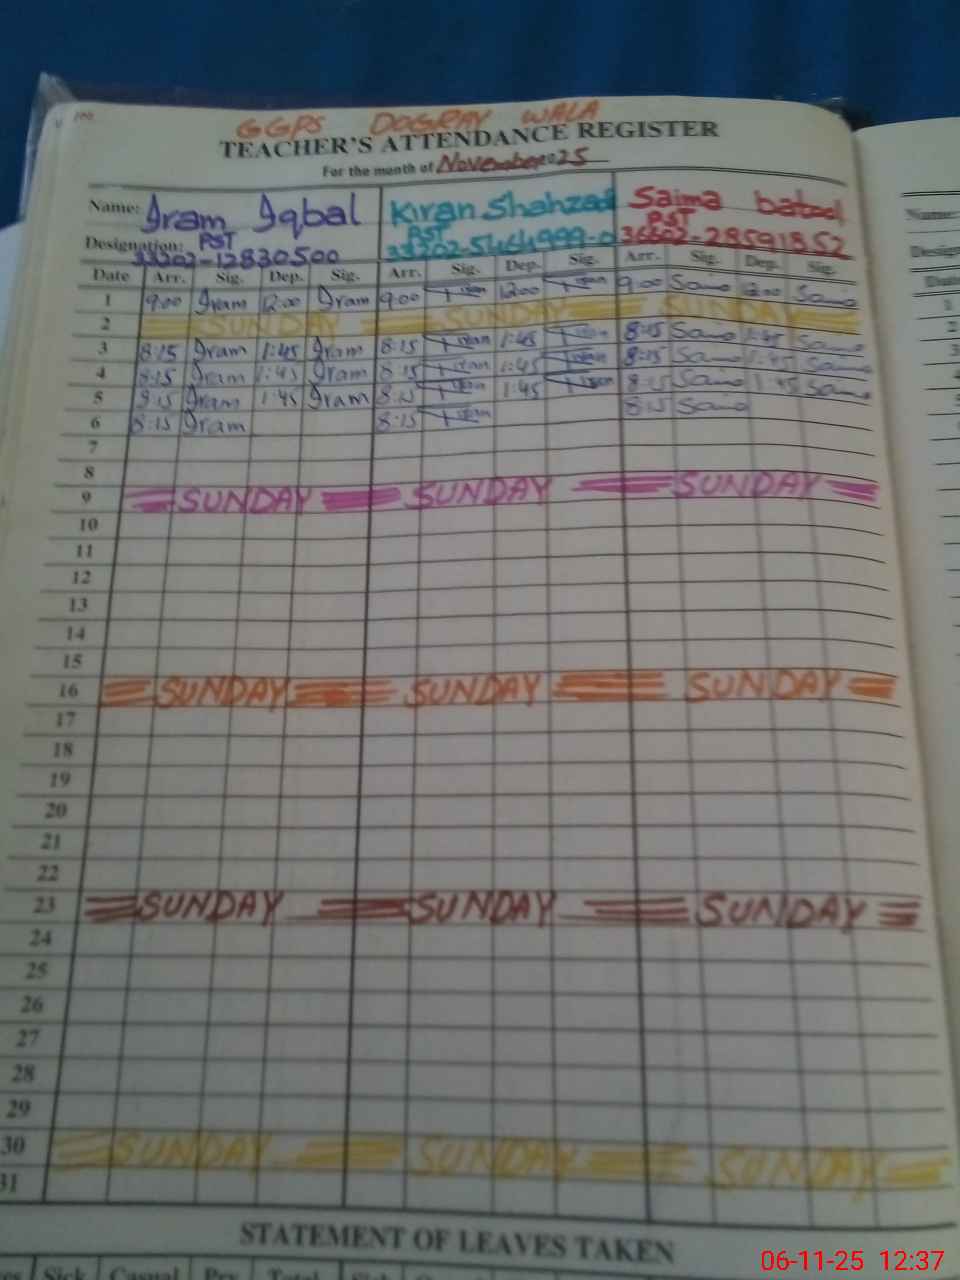 GGPS DOGRAY WALA
TEACHER'S ATTENDANCE REGISTER
For the month of November 2025
Name: Iram Iqbal Kiran Shahzad Saima batool
Designation: PST PST PST
33202-12830500 33202-5464999-0 36602-28591852
Date Arr. Sig. Dep. Sig. Arr. Sig. Dep. Sig. Arr. Sig. Dep. Sig.
1 9:00 Iram 12:00 Iram 9:00 12:00 9:00 Saima 12:00 Saima
2 SUNDAY SUNDAY SUNDAY
3 8:15 Iram 1:45 Iram 8:15 1:45 8:15 Saima 1:45 Saima
4 8:15 Iram 1:45 Iram 8:15 1:45 8:15 Saima 1:45 Saima
5 8:15 Iram 1:45 Iram 8:15 1:45 8:15 Saima 1:45 Saima
6 8:15 Iram 8:15 8:15 Saima
7
8
9 SUNDAY SUNDAY SUNDAY
10
11
12
13
14
15
16 SUNDAY SUNDAY SUNDAY
17
18
19
20
21
22
23 SUNDAY SUNDAY SUNDAY
24
25
26
27
28
29
30 SUNDAY SUNDAY SUNDAY
31
STATEMENT OF LEAVES TAKEN
Sick Casual Prv. Total
06-11-25 12:37